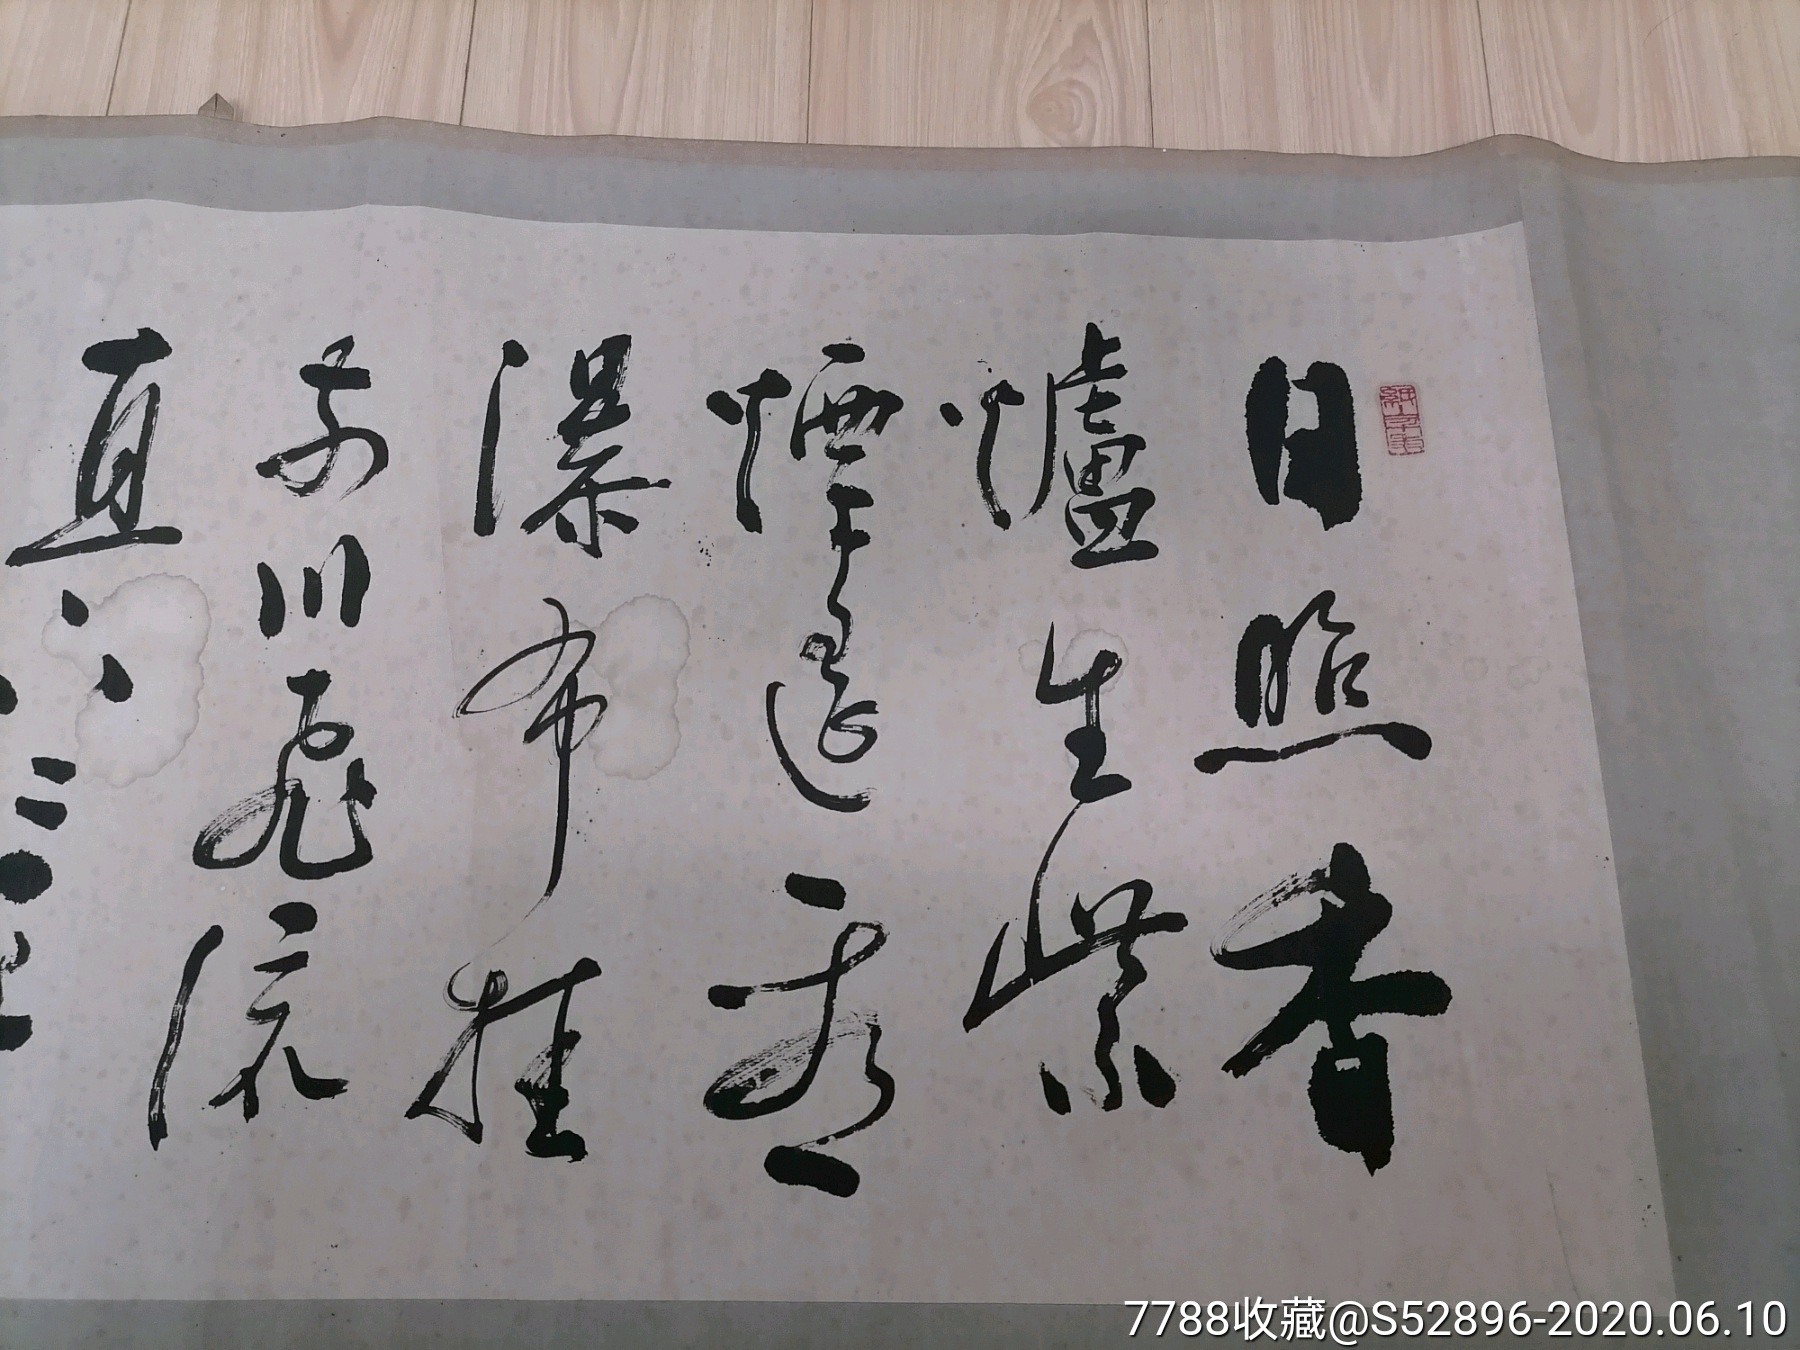 日照香
爐生紫
煙遥看
瀑布挂
前川飛流
直下三
7788收藏@S52896-2020.06.10